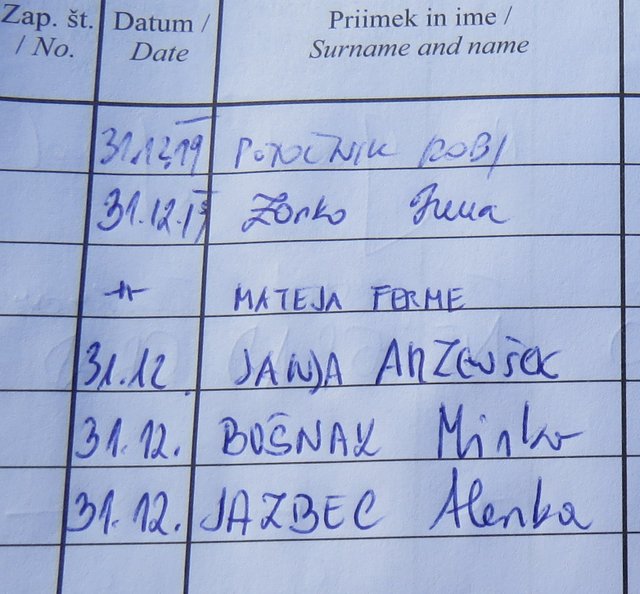 Zap. št. / No.
Datum / Date
Priimek in ime / Surname and name
31.12.19 POTOČNIK ROBI
31.12.19 Zorko Irena
-"- MATEJA FERME
31.12. JANJA ANŽEVŠEK
31.12. BOŠNAK Mirko
31.12. JAZBEC Alenka